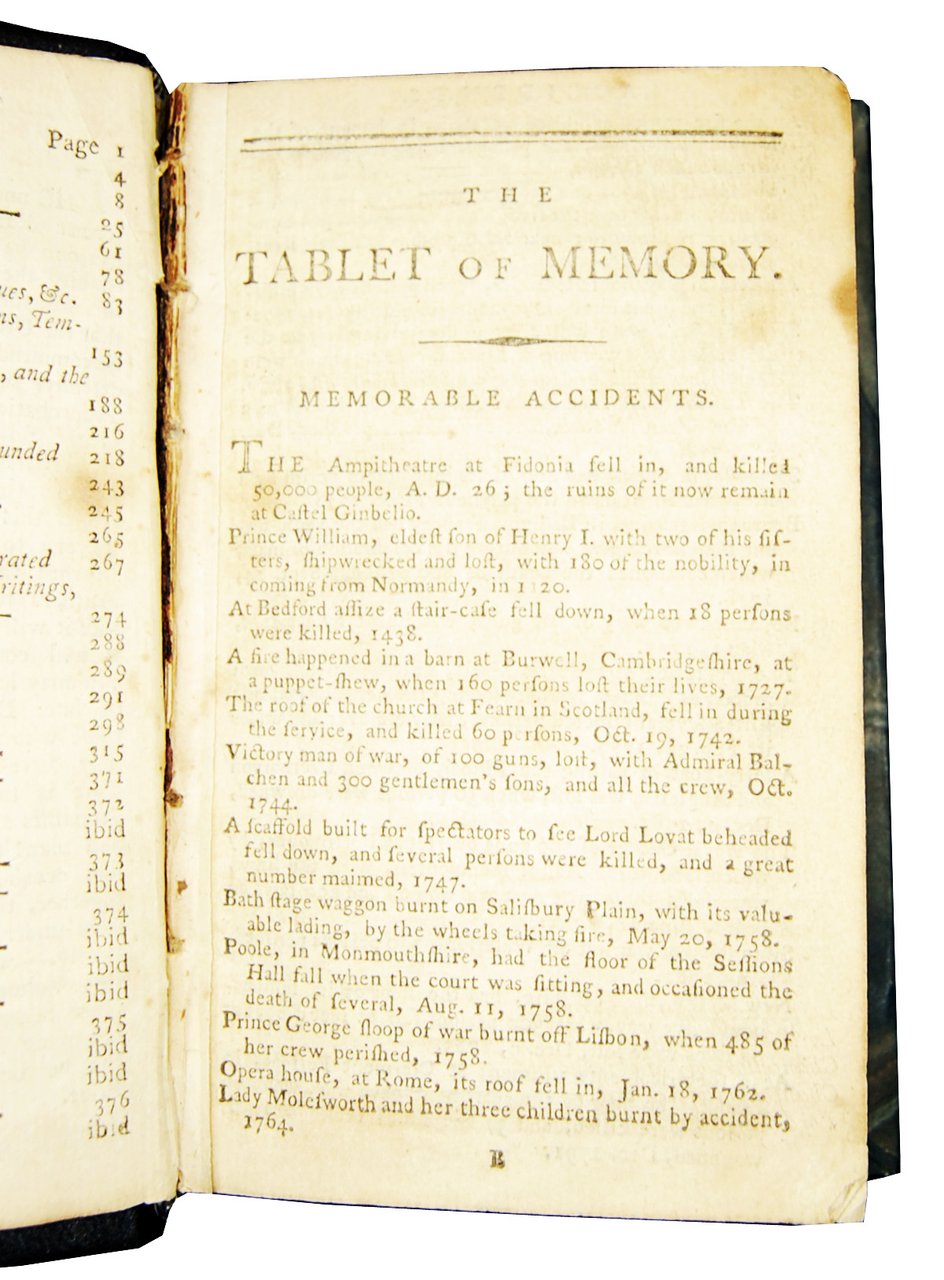 Page 1
4
8
25
61
78
ues, &c. 83
ns, Tem-
153
, and the
188
216
unded 218
243
245
265
rated 267
ritings,
274
288
289
291
298
315
371
372
ibid
373
ibid
374
ibid
ibid
ibid
375
ibid
ibid
376
ibid
THE
TABLET OF MEMORY.
MEMORABLE ACCIDENTS.
THE Ampitheatre at Fidonia fell in, and killed
50,000 people, A. D. 26; the ruins of it now remain
at Caſtel Ginbelio.
Prince William, eldeſt ſon of Henry I. with two of his ſiſ-
ters, ſhipwrecked and loſt, with 180 of the nobility, in
coming from Normandy, in 1120.
At Bedford aſſize a ſtair-caſe fell down, when 18 perſons
were killed, 1438.
A fire happened in a barn at Burwell, Cambridgeſhire, at
a puppet-ſhew, when 160 perſons loſt their lives, 1727.
The roof of the church at Fearn in Scotland, fell in during
the ſervice, and killed 60 perſons, Oct. 19, 1742.
Victory man of war, of 100 guns, loſt, with Admiral Bal-
chen and 300 gentlemen's ſons, and all the crew, Oct.
1744.
A ſcaffold built for ſpectators to ſee Lord Lovat beheaded
fell down, and ſeveral perſons were killed, and a great
number maimed, 1747.
Bath ſtage waggon burnt on Saliſbury Plain, with its valu-
able lading, by the wheels taking fire, May 20, 1758.
Poole, in Monmouthſhire, had the floor of the Seſſions
Hall fall when the court was ſitting, and occaſioned the
death of ſeveral, Aug. 11, 1758.
Prince George ſloop of war burnt off Liſbon, when 485 of
her crew periſhed, 1758.
Opera houſe, at Rome, its roof fell in, Jan. 18, 1762.
Lady Moleſworth and her three children burnt by accident,
1764.
B